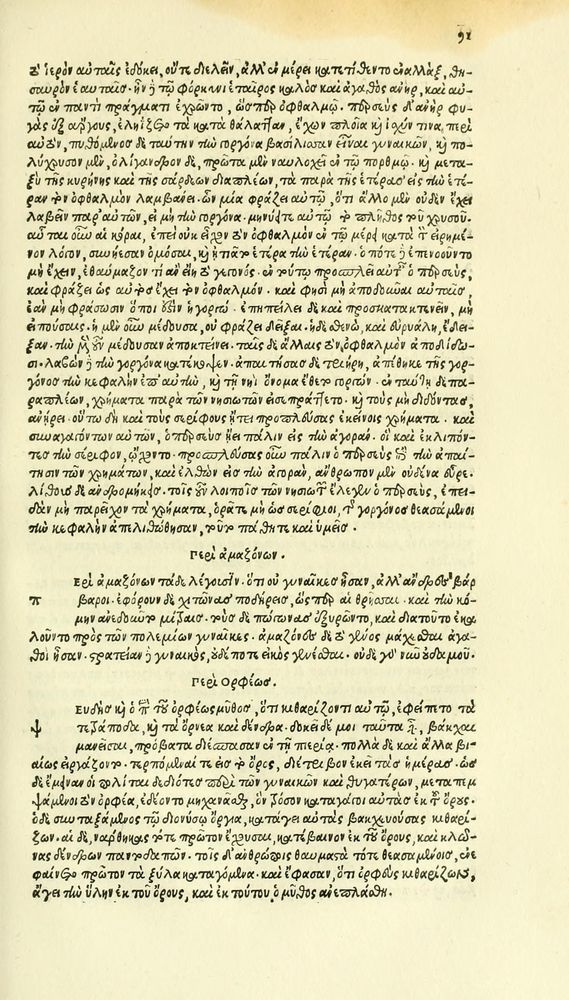 91
τὸ ἱερὸν αὐταῖς ἐδόκει, οὔτε διελεῖν, ἀλλ' ἐν μέρει κατετίθεντο ἐναλλὰξ, θη-
σαυρὸν ἑαυταῖσ· ἦν τῷ φόρκυνι ἑταῖρος καλὸς καὶ ἀγαθὸς ἀνὴρ, καὶ αὐ-
τῷ ἐν παντὶ πράγματι ἐχρῶντο, ὥσπερ ὀφθαλμῷ. περσεὺς δ' ἀνὴρ φυ-
γὰς ἐξ ἄργους, ἐληίζετο τὰ κατὰ θάλατταν, ἔχων πλοῖα καὶ ἰσχύν τινα, περὶ
αὐτὸν, πυθόμενος δὲ ταύτην τὴν γοργόνα βασίλισσαν εἶναι γυναικῶν, καὶ πο-
λύχρυσον μὲν, ὀλίγανδρον δὲ, πρῶτα μὲν ναυλοχεῖ ἐν τῷ πορθμῷ. καὶ μετα-
ξὺ τῆς κυρήνης καὶ τῆς σάρδεων διαπλέων, τὰ παρὰ τῆς ἑτέρας εἰς τὴν ἑτέ-
ραν τὸν ὀφθαλμὸν λαμβάνει· ὧν μία φράζει αὐτῷ, ὅτι ἄλλο μὲν οὐδὲν ἔχει
λαβεῖν παρ' αὐτῶν, εἰ μὴ τὴν γοργόνα· μηνύει τε αὐτῷ τὸ πλῆθος τοῦ χρυσοῦ.
αὗται οὖν αἱ κόραι, ἐπεὶ οὐκ εἶχον τὸν ὀφθαλμὸν ἐν τῷ μέρει κατὰ τὸν εἰρημέ-
νον λόγον, συνήεσαν ὁμόσαι, καὶ ᾐτιᾶτο ἑτέρα τὴν ἑτέραν. ὁπότε δὲ ἐπενοοῦντο
μὴ ἔχειν, ἐθαύμαζον τί ἂν εἴη τὸ γεγονός· ἐν τούτῳ προσπλεῖ αὐταῖς ὁ περσεὺς,
καὶ φράζει ὡς αὐτὸς ἔχει τὸν ὀφθαλμόν. καὶ φησὶ μὴ ἀποδοῦναι αὐταῖσ,
ἐὰν μὴ φράσωσιν ὅποι ἐστὶν ἡ γοργώ· ἐπηπείλει δὲ καὶ προσκατακτενεῖν, μὴ
εἰπούσαις. ἡ μὲν οὖν μέδουσα, οὐ φράζει δεῖξαι· ἡ δὲ σθενὼ, καὶ εὐρυάλη, ἔδει-
ξαν· τὴν μὲν οὖν μέδουσαν ἀποκτείνει. ταῖς δὲ ἄλλαις τὸν ὀφθαλμὸν ἀποδίδω-
σι. λαβὼν δὲ τὴν γοργόνα κατέκοψεν. ἀπαρτήσας δὲ τριήρη, ἀπέθηκε τῆς γορ-
γόνος τὴν κεφαλὴν ἐπ' αὐτὴν, καὶ τῇ νηὶ ὄνομα ἔθετο γοργών. ἐν ταύτῃ δὲ πα-
ραπλέων, χρήματα παρὰ τῶν νησιωτῶν εἰσεπράττετο. καὶ τοὺς μὴ διδόντας,
ἀνῄρει. οὕτω δὴ καὶ τοὺς σερίφους ᾔτει προσπλεύσας ἐκείνοις χρήματα. καὶ
συναγαγόντων αὐτῶν, ὁ περσεὺς ᾔει πάλιν εἰς τὴν ἀγοράν. οἱ καὶ ἐκλιπόν-
τες τὴν σέριφον, ᾤχοντο. προσπλεύσας οὖν πάλιν ὁ περσεὺς ἐπὶ τὴν ἀπαί-
τησιν τῶν χρημάτων, καὶ ἐλθὼν εἰς τὴν ἀγορὰν, ἄνθρωπον μὲν οὐδένα εὗρε.
λίθους δὲ ἀνδρομήκησ. τοῖς οὖν λοιποῖς τῶν νησιωτῶν ἔλεγεν ὁ περσεὺς, ἐπει-
δὰν μὴ παρεῖχον τὰ χρήματα, ὁρᾶτε μὴ ὡς σερίφιοι, τῆς γοργόνος θεασάμενοι
τὴν κεφαλὴν ἀπελιθώθησαν, τοῦτο πάθητε καὶ ὑμεῖσ.
Περὶ ἀμαζόνων.
π Ερὶ ἀμαζόνων τάδε λέγουσιν. ὅτι οὐ γυναῖκες ἦσαν, ἀλλ' ἄνδρες βάρ
βαροι. ἐφόρουν δὲ χιτῶνας ποδήρεισ, ὥσπερ αἱ θρῇσσαι. καὶ τὴν κό-
μην ἀνέδουν μίτραισ. τοὺς δὲ πώγωνας ἐξυρῶντο, καὶ διὰ τοῦτο ἐκα
λοῦντο πρὸς τῶν πολεμίων γυναῖκες. ἀμαζόνες δὲ τὸ γένος μάχεσθαι ἀγα-
θοὶ ἦσαν. στρατείαν δὲ γυναικὸς, οὐδέποτε εἰκὸς γενέσθαι. οὐδὲ γὰρ νῦν οὐδαμοῦ.
Περὶ Ορφέωσ.
ψ Ευδὴς καὶ ὁ περὶ τοῦ ὀρφέως μῦθος, ὅτι κιθαρίζοντι αὐτῷ, ἐφείπετο τὰ
τετράποδα, καὶ τὰ ὄρνεα καὶ δένδρα. δοκεῖ δέ μοι ταῦτα εἶναι, βάκχαι
μανεῖσαι, πρόβατα διέσπασαν ἐν τῇ πιερίᾳ. πολλὰ δὲ καὶ ἄλλα βι-
αίως εἰργάζοντο. τρεπόμεναί τε εἰς τὸ ὄρος, διέτριβον ἐκεῖ τὰς ἡμέρασ. ὡς
δὲ ἔμειναν οἱ πολῖται δεδιότες περὶ τῶν γυναικῶν καὶ θυγατέρων, μεταπεμ
ψάμενοι τὸν ὀρφέα, ἐδέοντο μηχανᾶσθαι, ὃν τρόπον καταγάγοι αὐτὰς ἐκ τοῦ ὄρους.
ὁ δὲ συνταξάμενος τῷ διονύσῳ ὄργια, κατάγει αὐτὰς βακχευούσας κιθαρί-
ζων. αἱ δὲ, νάρθηκας τότε πρῶτον ἔχουσαι, κατέβαινον ἐκ τοῦ ὄρους, καὶ κλῶ-
νας δένδρων παντοδαπῶν. τοῖς δ' ἀνθρώποις θαυμαστὰ τότε θεασαμένοισ, ἐνε
φαίνετο πρῶτον τὰ ξύλα καταγόμενα. καὶ ἔφασαν, ὅτι ὀρφεὺς κιθαρίζων,
ἄγει τὴν ὕλην ἐκ τοῦ ὄρους, καὶ ἐκ τούτου ὁ μῦθος ἀνεπλάσθη.